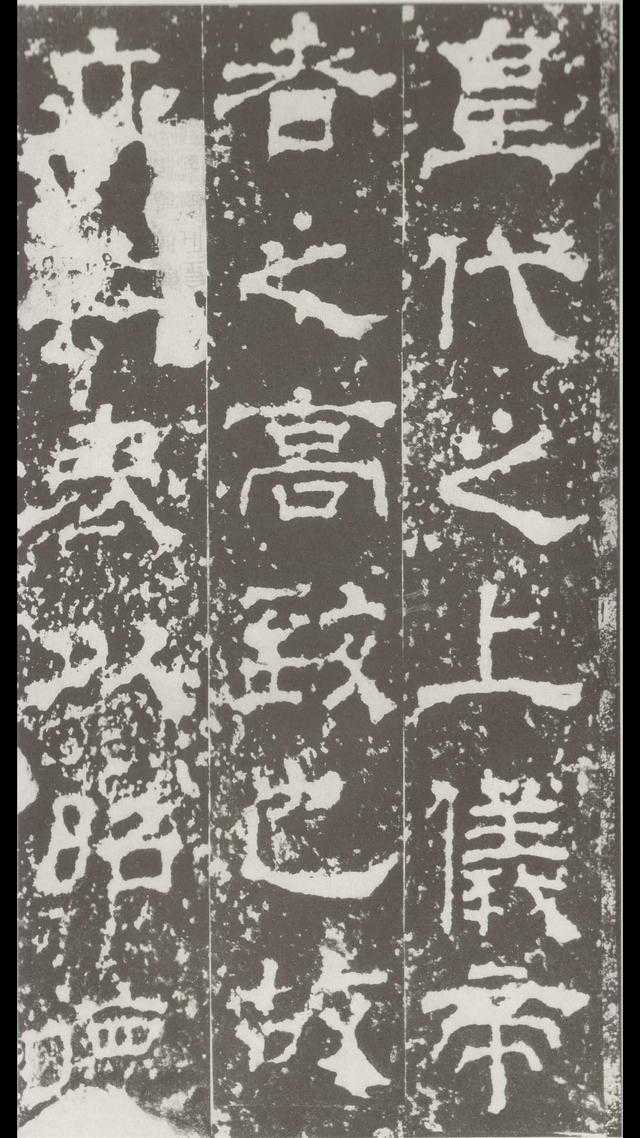 皇代之上儀帝
者之高致也故
表以昭